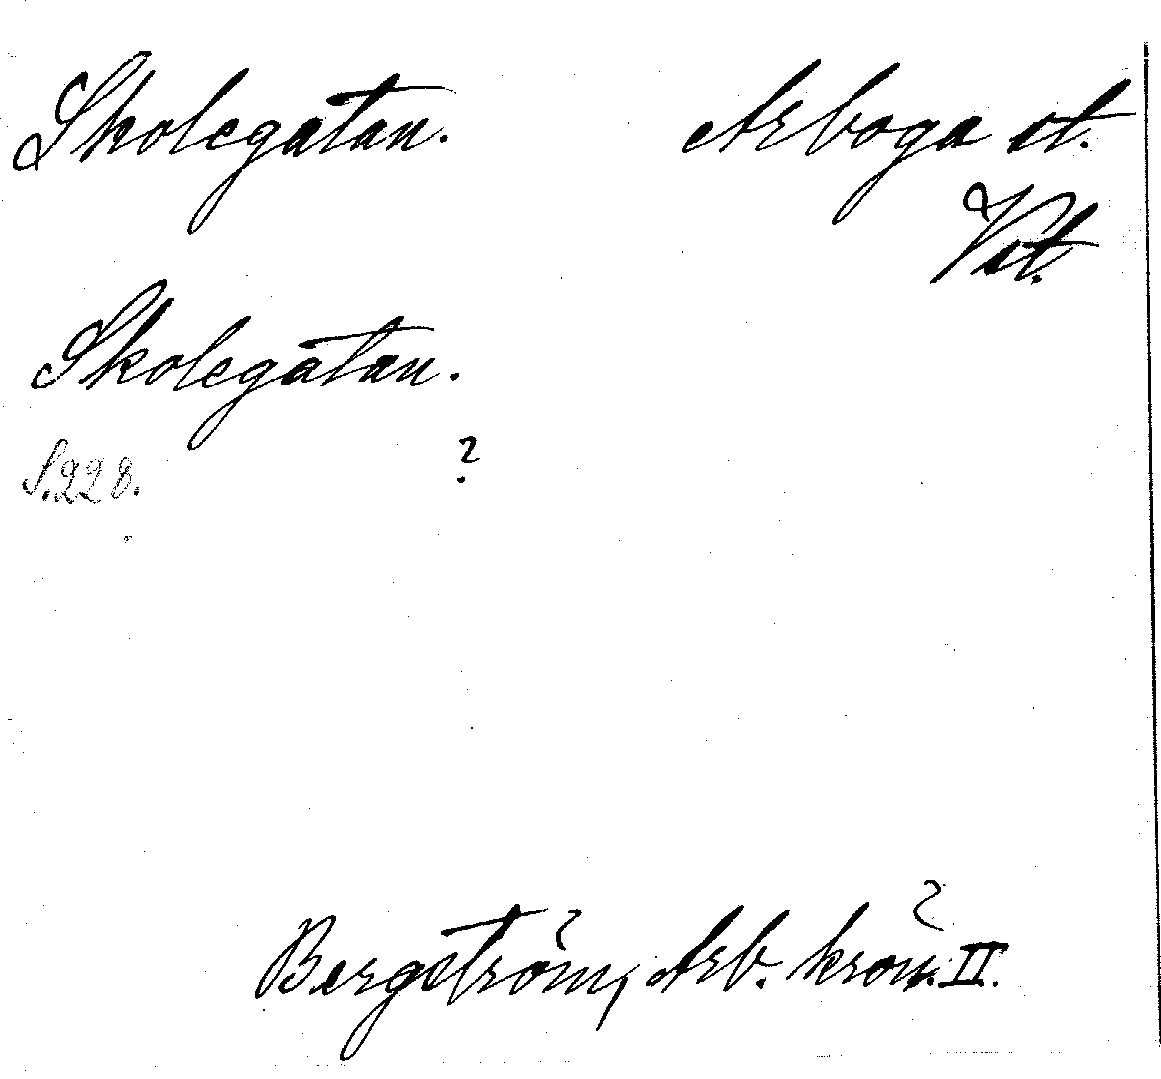 Skolegatan. Arboga st.
Vstl.
Skolegatan.
S. 228. ?
Bergström, Arb. krön. II.